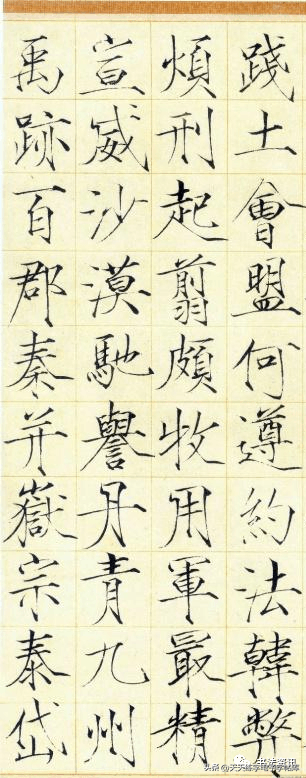 踐土會盟何遵約法韓弊
煩刑起翦頗牧用軍最精
宣威沙漠馳譽丹青九州
禹跡百郡秦并嶽宗泰岱
书法资讯